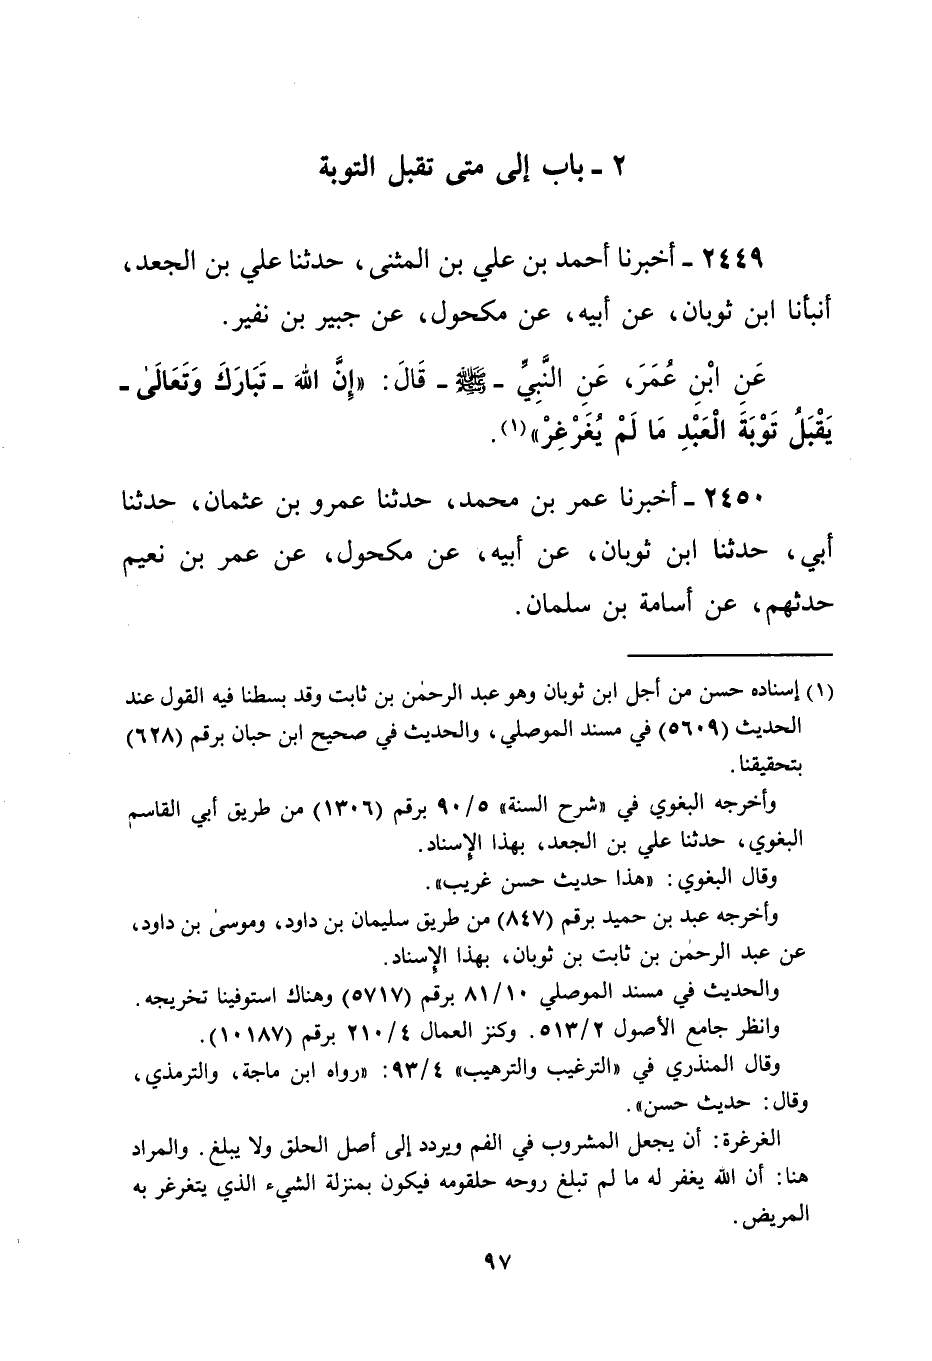 ٢ ـ باب إلى متى تقبل التوبة
٢٤٤٩ ـ أخبرنا أحمد بن علي بن المثنى، حدثنا علي بن الجعد،
أنبأنا ابن ثوبان، عن أبيه، عن مكحول، عن جبير بن نفير.
عَنِ ابْنِ عُمَرَ، عَنِ النَّبِيِّ ـ ﷺ ـ قَالَ: «إِنَّ اللهَ ـ تَبَارَكَ وَتَعَالَىٰ ـ
يَقْبَلُ تَوْبَةَ الْعَبْدِ مَا لَمْ يُغَرْغِرْ»(١).
٢٤٥٠ ـ أخبرنا عمر بن محمد، حدثنا عمرو بن عثمان، حدثنا
أبي، حدثنا ابن ثوبان، عن أبيه، عن مكحول، عن عمر بن نعيم
حدثهم، عن أسامة بن سلمان.
(١) إسناده حسن من أجل ابن ثوبان وهو عبد الرحمٰن بن ثابت وقد بسطنا فيه القول عند
الحديث (٥٦٠٩) في مسند الموصلي، والحديث في صحيح ابن حبان برقم (٦٢٨)
بتحقيقنا.
وأخرجه البغوي في «شرح السنة» ٩٠/٥ برقم (١٣٠٦) من طريق أبي القاسم
البغوي، حدثنا علي بن الجعد، بهذا الإسناد.
وقال البغوي: «هذا حديث حسن غريب».
وأخرجه عبد بن حميد برقم (٨٤٧) من طريق سليمان بن داود، وموسىٰ بن داود،
عن عبد الرحمٰن بن ثابت بن ثوبان، بهذا الإسناد.
والحديث في مسند الموصلي ٨١/١٠ برقم (٥٧١٧) وهناك استوفينا تخريجه.
وانظر جامع الأصول ٥١٣/٢. وكنز العمال ٢١٠/٤ برقم (١٠١٨٧).
وقال المنذري في «الترغيب والترهيب» ٩٣/٤: «رواه ابن ماجة، والترمذي،
وقال: حديث حسن».
الغرغرة: أن يجعل المشروب في الفم ويردد إلى أصل الحلق ولا يبلغ. والمراد
هنا: أن الله يغفر له ما لم تبلغ روحه حلقومه فيكون بمنزلة الشيء الذي يتغرغر به
المريض.
٩٧